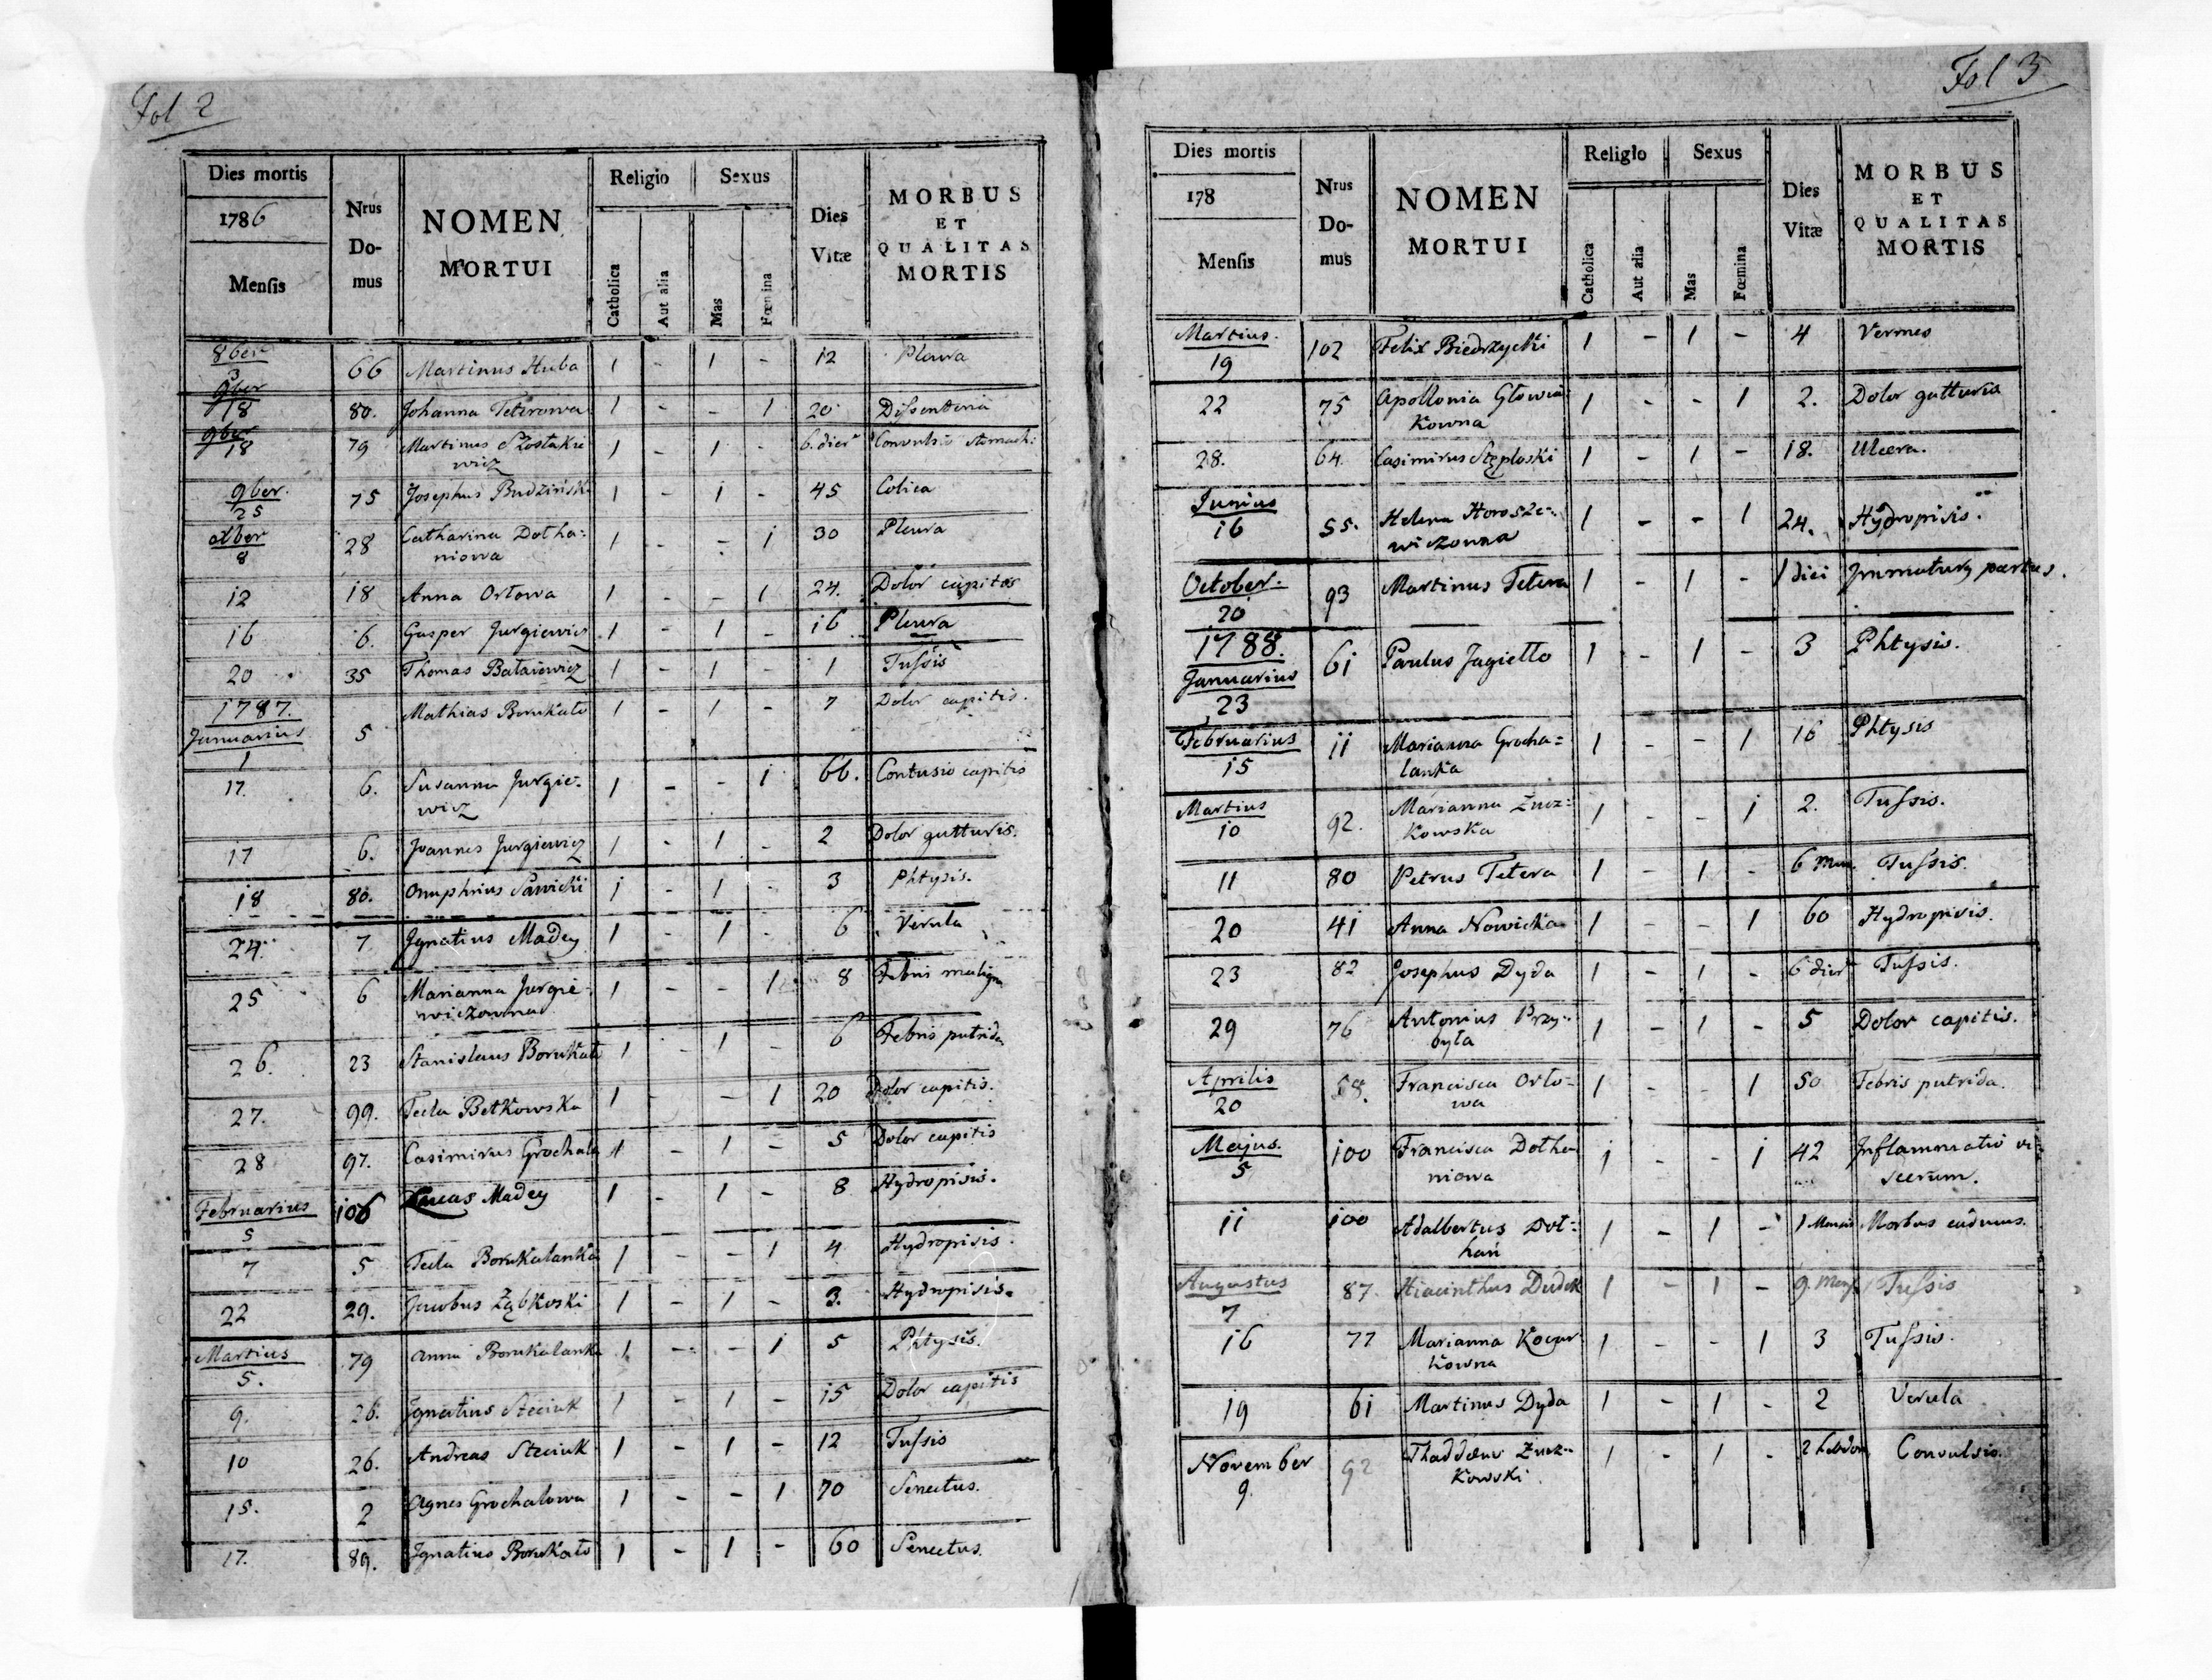 Fol 2
Dies mortis
1786
Mensis
Nrus
Do-
mus
NOMEN
MORTUI
Religio
Catholica
Aut alia
Sexus
Mas
Fœmina
Dies
Vitæ
MORBUS
ET
QUALITAS
MORTIS
8ber
3 66 Martinus Huba 1 - 1 - 12 Pleura
9ber
18 80. Johanna Teterowa 1 - - 1 20 Dissenteria
9ber
18 79 Martinus Szostakie 1 - 1 - 6. dier Convulsio stomach:
wicz
9ber.
25 75 Josephus Budzinski 1 - i - 45 Colica
Xber
8 28 Catharina Dotha: 1 - - i 30 Pleura
niowa
12 18 Anna Orłowa 1 - - 1 24. Dolor capitis
16 6. Gasper Jurgiewicz 1 - 1 - 16 Pleura
20 35 Thomas 1 - 1 - 1 Tussis
1787.
Januarius
1 5 Mathias Borukało 1 - 1 - 7 Dolor capitis.
17. 6. Susanna Jurgie- 1 - - i 66. Contusio capitis
wicz
17 6. Joannes Jurgiewicz 1 - 1 - 2 Dolor gutturis.
18 80. Onuphrius Sawicki i - 1 - 3 Phtysis.
24. 7. Ignatius Madey 1 - 1 - 6 Verula
25 6 Marianna Jurgie- 1 - - 1 8 Febris malign
wiczowna
26. 23 Stanislaus Borukało 1 - 1 - 6 Febris putrida
27. 99. Tecla Betkowska 1 - - 1 20 Dolor capitis.
28 97. Casimirus Grochala 1 - 1 - 5 Dolor capitis
Februarius
5 106 Lucas Madey 1 - 1 - 8 Hydropisis.
7 5 Tecla Borukalanka 1 - - 1 4 Hydropisis.
22 29. Jacobus Ząbkoski 1 - 1 - 3. Hydropisis.
Martius
5. 79 Anna Borukalanka 1 - - i 5 Phtysis.
9. 26. Ignatius Steciuk 1 - 1 - 15 Dolor capitis
10 26. Andreas Steciuk 1 - 1 - 12 Tussis
15. 2 Agnes Grochalowa 1 - - 1 70 Senectus.
17. 89. Ignatius Borukało 1 - 1 - 60 Senectus.
Fol 3
Dies mortis
178
Mensis
Nrus
Do-
mus
NOMEN
MORTUI
Religio
Catholica
Aut alia
Sexus
Mas
Fœmina
Dies
Vitæ
MORBUS
ET
QUALITAS
MORTIS
Martius.
19 102 Felix Biedrzycki 1 - 1 - 4 Vermes
22 75 Apollonia Głowia: 1 - - 1 2. Dolor gutturis
kowna
28. 64. Casimirus Stęploski 1 - 1 - 18. Ulcera.
Junius
16 55. Helena Horosze- 1 - - 1 24. Hydropisis.
wiczowna
October.
20 93 Martinus Tetera 1 - 1 - 1 diei Immaturg partus.
1788.
Januarius
23 61 Paulus Jagiełło 1 - 1 - 3 Phtysis.
Februarius
15 11 Marianna Grocha= 1 - - 1 16 Phtysis
lanka
Martius
10 92. Marianna Żucz: 1 - - 1 2. Tussis.
kowska
11 80 Petrus Tetera 1 - 1 - 6 Men. Tussis.
20 41 Anna Nowicka 1 - - 1 60 Hydropisis.
23 82 Josephus Dyda 1 - 1 - 6 dier Tussis.
29 76 Antonius Przy- 1 - 1 - 5 Dolor capitis.
była
Aprilis
20 58. Francisca Orło- 1 - - 1 50 Febris putrida.
wa
Majus.
5 100 Francisca Dotha i - - i 42 Inflammatio vi
niowa scerum.
11 100 Adalbertus Dot: 1 - 1 - 1 Mensis Morbus
hań
Augustus
7 87. Hiacinthus Dudek 1 - 1 - 9. Mens. Tussis
16 77 Marianna 1 - - 1 3 Tussis.
kowna
19 61 Martinus Dyda 1 - 1 - 2 Verula
November
9. 92 Thaddæus Żucz- 1 - 1 - 2 hebdom Convulsio.
kowski